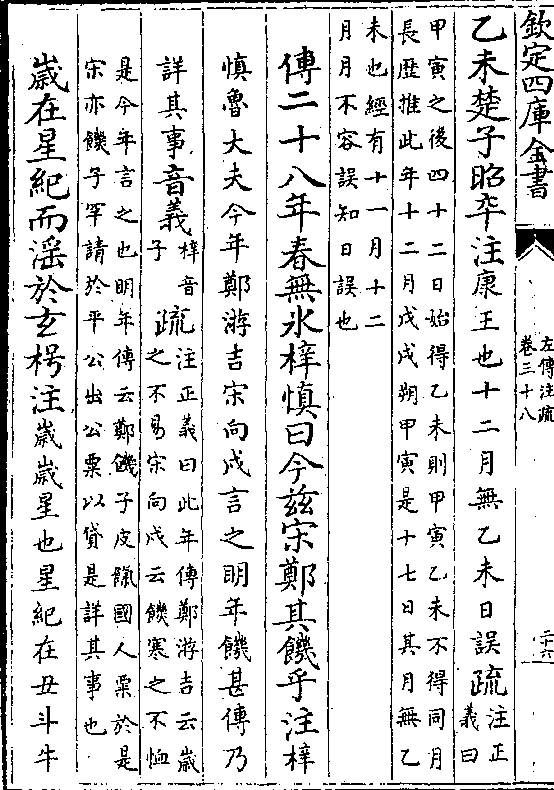 欽定四庫全書
左傳注疏
卷三十八
二十六
乙未楚子昭卒注康王也十二月無乙未日誤疏
注正
義曰
甲寅之後四十二日始得乙未則甲寅乙未不得同月
長歷推此年十二月戊戌朔甲寅是十七日其月無乙
未也經有十一月十二
月月不容誤知日誤也
傳二十八年春無氷梓慎曰今兹宋鄭其饑乎注梓
慎魯大夫今年鄭游吉宋向戌言之明年饑甚傳乃
詳其事音義
梓音
子
疏
注正義曰此年傳鄭游吉云歳
之不易宋向戌云饑寒之不恤
是今年言之也明年傳云鄭饑子皮餼國人粟於是
宋亦饑子罕請於平公出公粟以貸是詳其事也
歳在星紀而淫於玄枵注歳歳星也星紀在丑斗牛